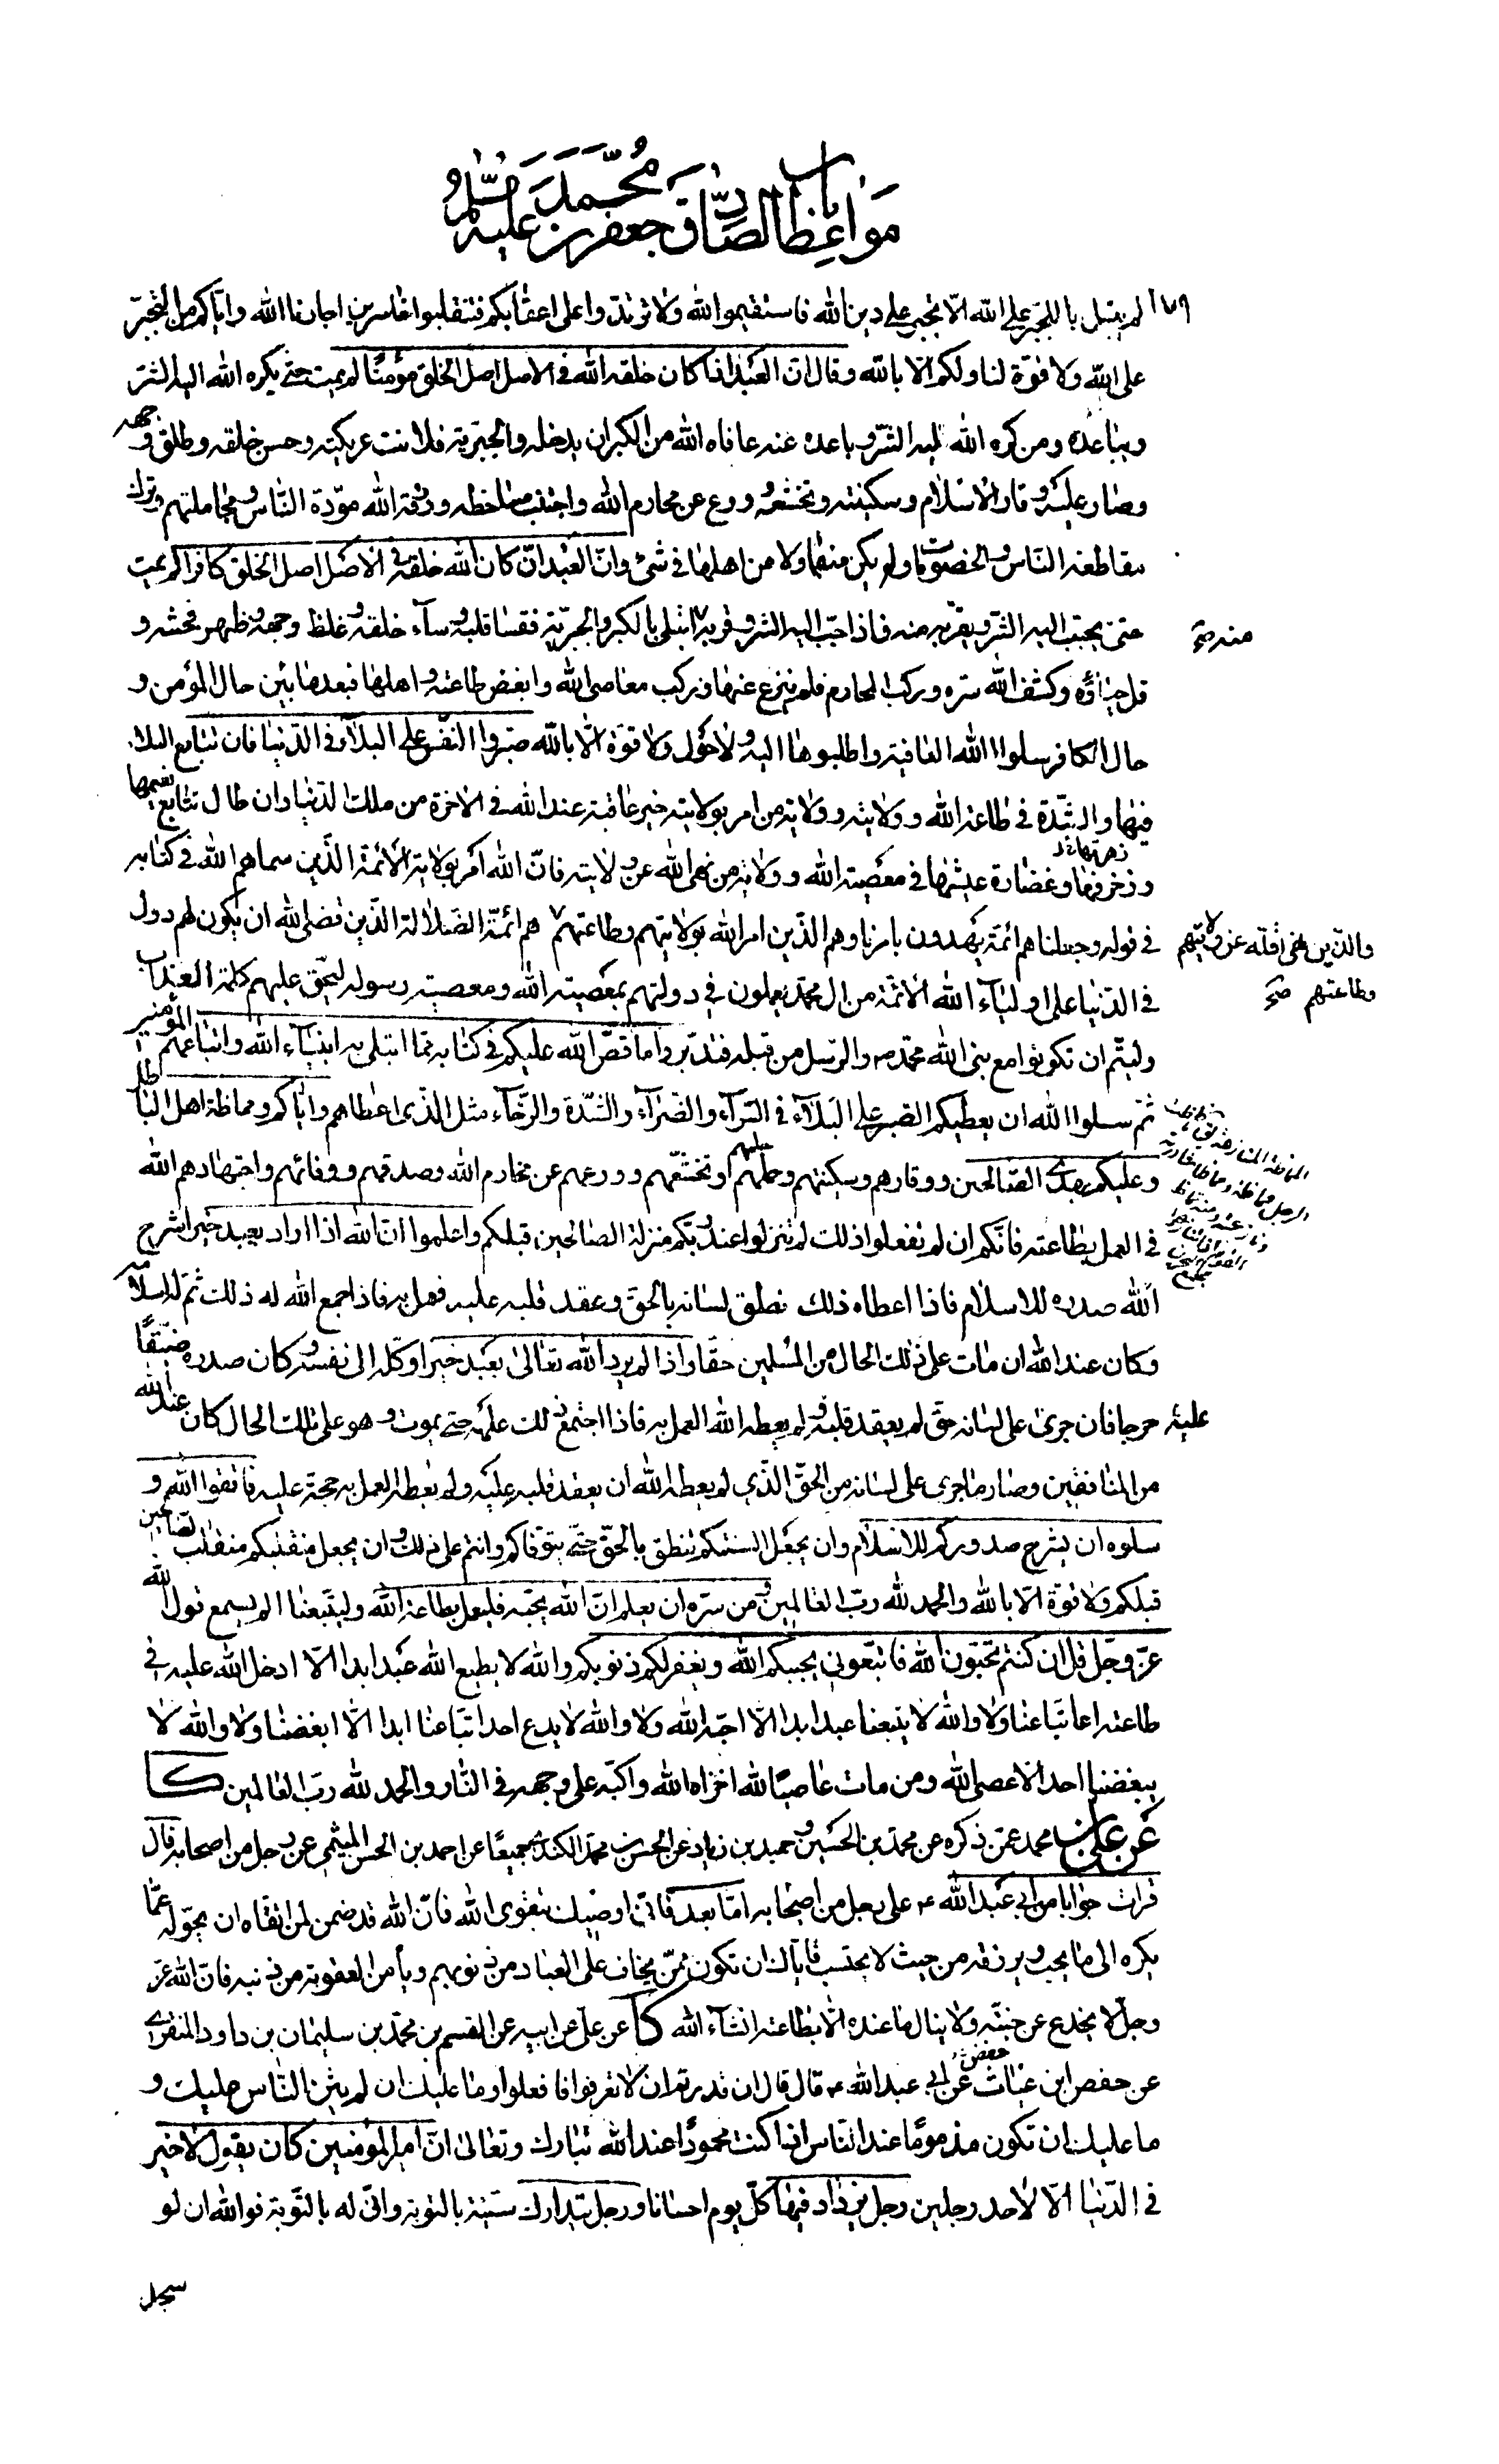 باب
مواعظ الصادق جعفر بن محمد عليه السلام
١٧٩ لم يبتل بالتجبر على الله الا تجبر على دين الله فاستقيموا لله ولا ترتدوا على اعقابكم فتنقلبوا خاسرين اجارنا الله واياكم من التجبر
على الله ولا قوة لنا ولكم الا بالله وقال ان العبد اذا كان خلقه الله في الاصل اصل الخلق مؤمنا لم يمت حتى يكره الله اليه الشر
ويباعده ومن كره الله اليه الشر وباعده عنه عافاه الله من الكبر ان يدخله والجبرية فلانت عريكته وحسن خلقه وطلق وجهه
وصار عليه وقار الاسلام وسكينته وتخشعه وورع عن محارم الله واجتنب مساخطه ورزقه الله مودة الناس ومجاملتهم وترك
مقاطعة الناس والخصومات ولم يكن منها ولا من اهلها في شئ وان العبد ان كان الله خلقه في الاصل اصل الخلق كافرا لم يمت
حتى يحبب اليه الشر ويقربه منه فاذا حبب اليه الشر وقربه ابتلى بالكبر والجبرية فقسا قلبه وساء خلقه وغلظ وجهه وظهر فحشه و
منه صح
قل حياؤه وكشف الله ستره وركب المحارم فلم ينزع عنها وركب معاصي الله وابغض طاعته واهلها فبعد ما بين حال المؤمن و
حال الكافر سلوا الله العافية واطلبوها اليه ولا حول ولا قوة الا بالله صبروا النفس على البلاء في الدنيا فان تتابع البلاء
فيها والشدة في طاعة الله وولايته وولاية من امر بولايته خير عاقبة عند الله في الاخرة من ملك الدنيا وان طال تتابع نعيمها
زهرتها
وزخرفها وغضارة عيشها في معصية الله وولاية من نهى الله عن ولايته فان الله امر بولاية الائمة الذين سماهم الله في كتابه
في قوله وجعلناهم ائمة يهدون بامرنا وهم الذين امر الله بولايتهم وطاعتهم هم ائمة الضلالة الذين قضى الله ان يكون لهم دول
والذين نهى الله عن ولايتهم
وطاعتهم صح
في الدنيا على اولياء الله الائمة من ال محمد يعملون في دولتهم بمعصية الله ومعصية رسوله ليحق عليهم كلمة العذاب
وليتم ان تكونوا مع نبي الله محمد ص والرسل من قبله فتدبروا ما قص الله عليكم في كتابه مما ابتلى به انبياء الله واتباعهم المؤمنين
ثم سلوا الله ان يعطيكم الصبر على البلاء في السراء والضراء والشدة والرخاء مثل الذي اعطاهم واياكم ومماظة اهل الباطل
وعليكم بهدى الصالحين ووقارهم وسكينتهم وحلمهم وتخشعهم وورعهم عن محارم الله وصدقهم ووفائهم واجتهادهم لله
في العمل بطاعته فانكم ان لم تفعلوا ذلك لم تنزلوا عند ربكم منزلة الصالحين قبلكم واعلموا ان الله اذا اراد بعبد خيرا شرح
الله صدره للاسلام فاذا اعطاه ذلك نطق لسانه بالحق وعقد قلبه عليه فعمل به فاذا جمع الله له ذلك ثم له اسلامه
وكان عند الله ان مات على ذلك الحال من المسلمين حقا واذا لم يرد الله تعالى بعبد خيرا وكله الى نفسه وكان صدره ضيقا
عليه حرجا فان جرى على لسانه حق لم يعقد قلبه ولم يعطه الله العمل به فاذا اجتمع ذلك عليه حتى يموت وهو على تلك الحال كان عند الله
من المنافقين وصار ما جرى على لسانه من الحق الذي لم يعطه الله ان يعقد قلبه عليه ولم يعطه العمل به حجة عليه فاتقوا الله و
سلوه ان يشرح صدوركم للاسلام وان يجعل السنتكم تنطق بالحق حتى يتوفاكم وانتم على ذلك وان يجعل منقلبكم منقلب الصالحين
قبلكم ولا قوة الا بالله والحمد لله رب العالمين ومن سره ان يعلم ان الله يحبه فليعمل بطاعة الله وليتبعنا الم يسمع قول الله
عز وجل قل ان كنتم تحبون الله فاتبعوني يحببكم الله ويغفر لكم ذنوبكم والله لا يطيع الله عبد ابدا الا ادخل الله عليه في
طاعته اتباعنا ولا والله لا يتبعنا عبد ابدا الا احبه الله ولا والله لا يدع احد اتباعنا ابدا الا ابغضنا ولا والله لا
يبغضنا احد الا عصى الله ومن مات عاصيا لله اخزاه الله واكبه على وجهه في النار والحمد لله رب العالمين كا
عن علي بن محمد عمن ذكره عن محمد بن الحسين وحميد بن زياد عن الحسن بن محمد الكندي جميعا عن احمد بن الحسن الميثمي عن رجل من اصحابه قال
قرات جوابا من ابي عبد الله ع على رجل من اصحابه اما بعد فاني اوصيك بتقوى الله فان الله قد ضمن لمن اتقاه ان يحوله عما
يكره الى ما يحب ويرزقه من حيث لا يحتسب فاياك ان تكون ممن يخاف على العباد من ذنوبهم ويأمن العقوبة من ذنبه فان الله عز
وجل لا يخدع عن جنته ولا ينال ما عنده الا بطاعته انشاء الله كا عن علي عن ابيه عن القسم بن محمد بن سليمان بن داود المنقري
حفص
عن حفص ابن غياث عن ابي عبد الله ع قال قال ان قدرتم ان لا تعرفوا فافعلوا وما عليك ان لم يثن الناس عليك و
ما عليك ان تكون مذموما عند الناس اذا كنت محمودا عند الله تبارك وتعالى ان امير المؤمنين كان يقول لا خير
في الدنيا الا لاحد رجلين رجل يزداد فيها كل يوم احسانا ورجل يتدارك سيئته بالتوبة وانى له بالتوبة فوالله ان لو
سجد